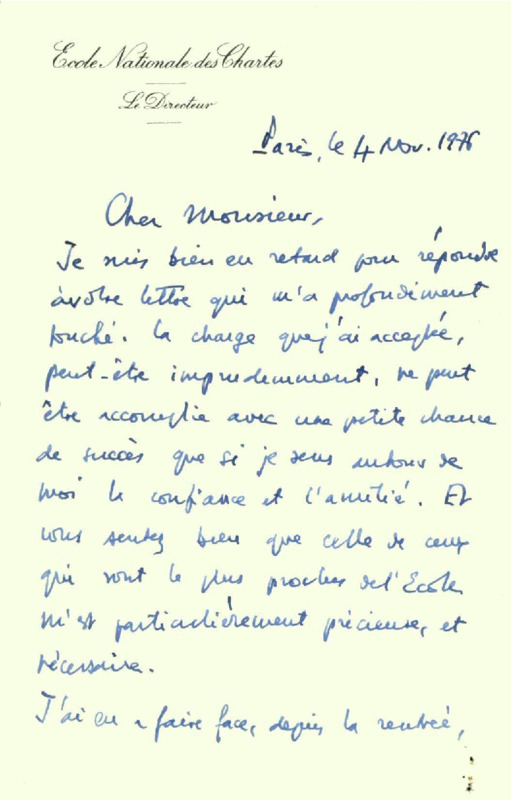 Ecole Nationale des Chartes
Le Directeur
Paris, le 4 Nov. 1976
Cher Monsieur,
Je suis bien en retard pour répondre
à votre lettre qui m'a profondément
touché. La charge que j'ai acceptée,
peut-être imprudemment, ne peut
être accomplie avec une petite chance
de succès que si je sens autour de
moi la confiance et l'amitié. Et
vous sentez bien que celle de ceux
qui sont le plus proches de l'Ecole
m'est particulièrement précieuse, et
nécessaire.
J'ai eu à faire face, depuis la rentrée,